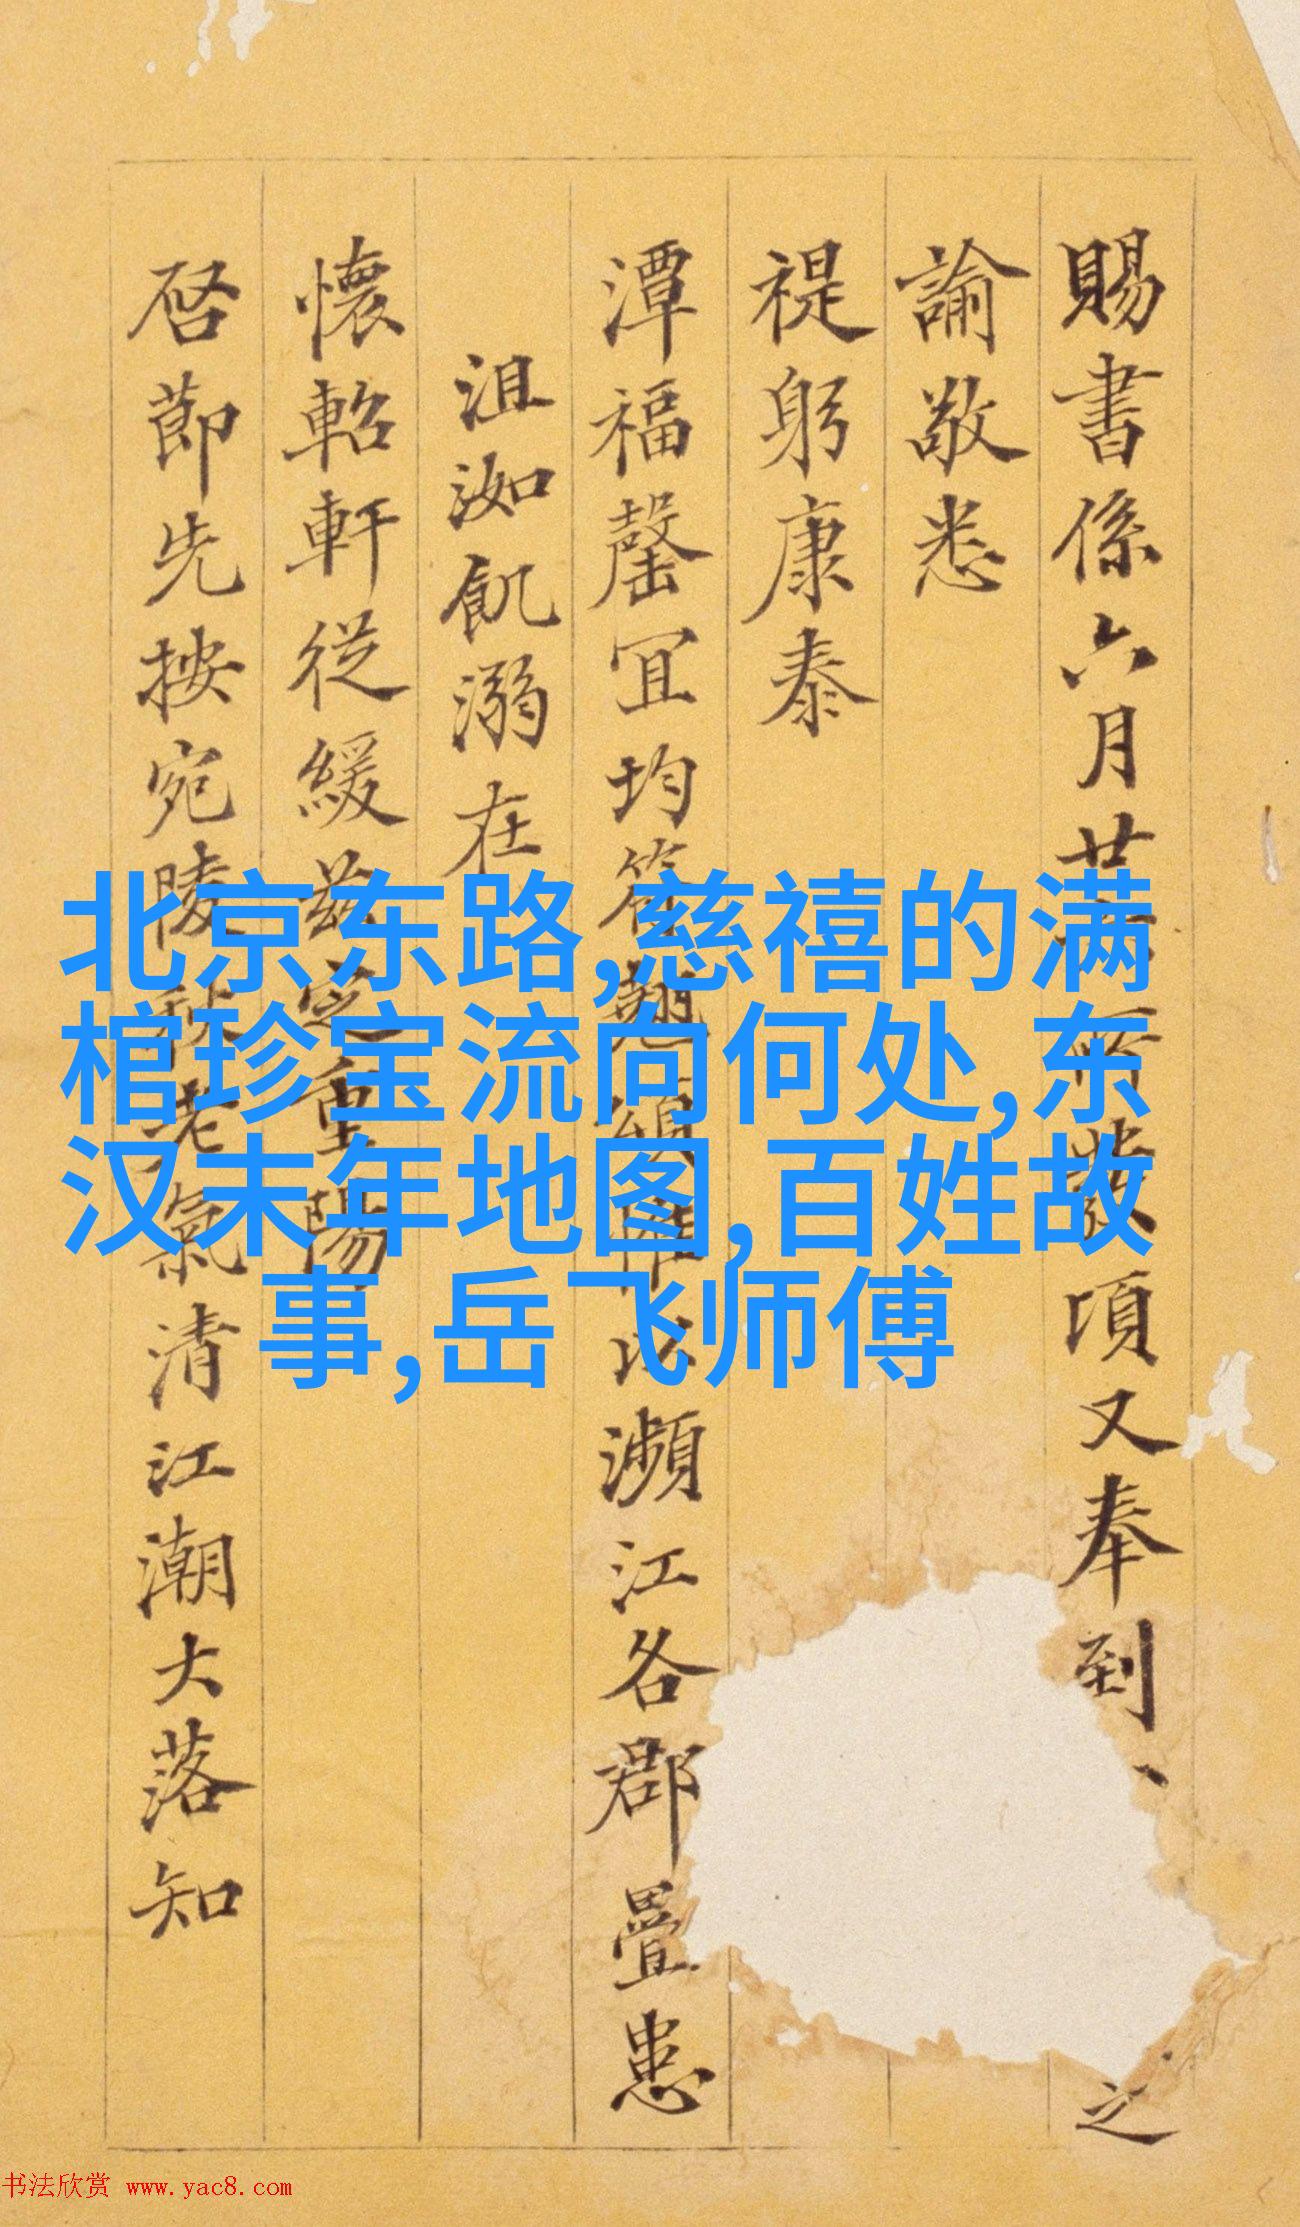 賜書係六月廿 所發項又奉到 之
諭敬悉
禔躬康泰
潭福罄宜均符 頌 以瀕江各郡疊患
沮洳飢溺在
懷軺軒從緩茲定重陽
启節先按宛陵秋老氣清江潮大落知
北京东路,慈禧的满
棺珍宝流向何处,东
汉末年地图,百姓故
事,岳飞师傅
书法欣赏 www.yac8.com